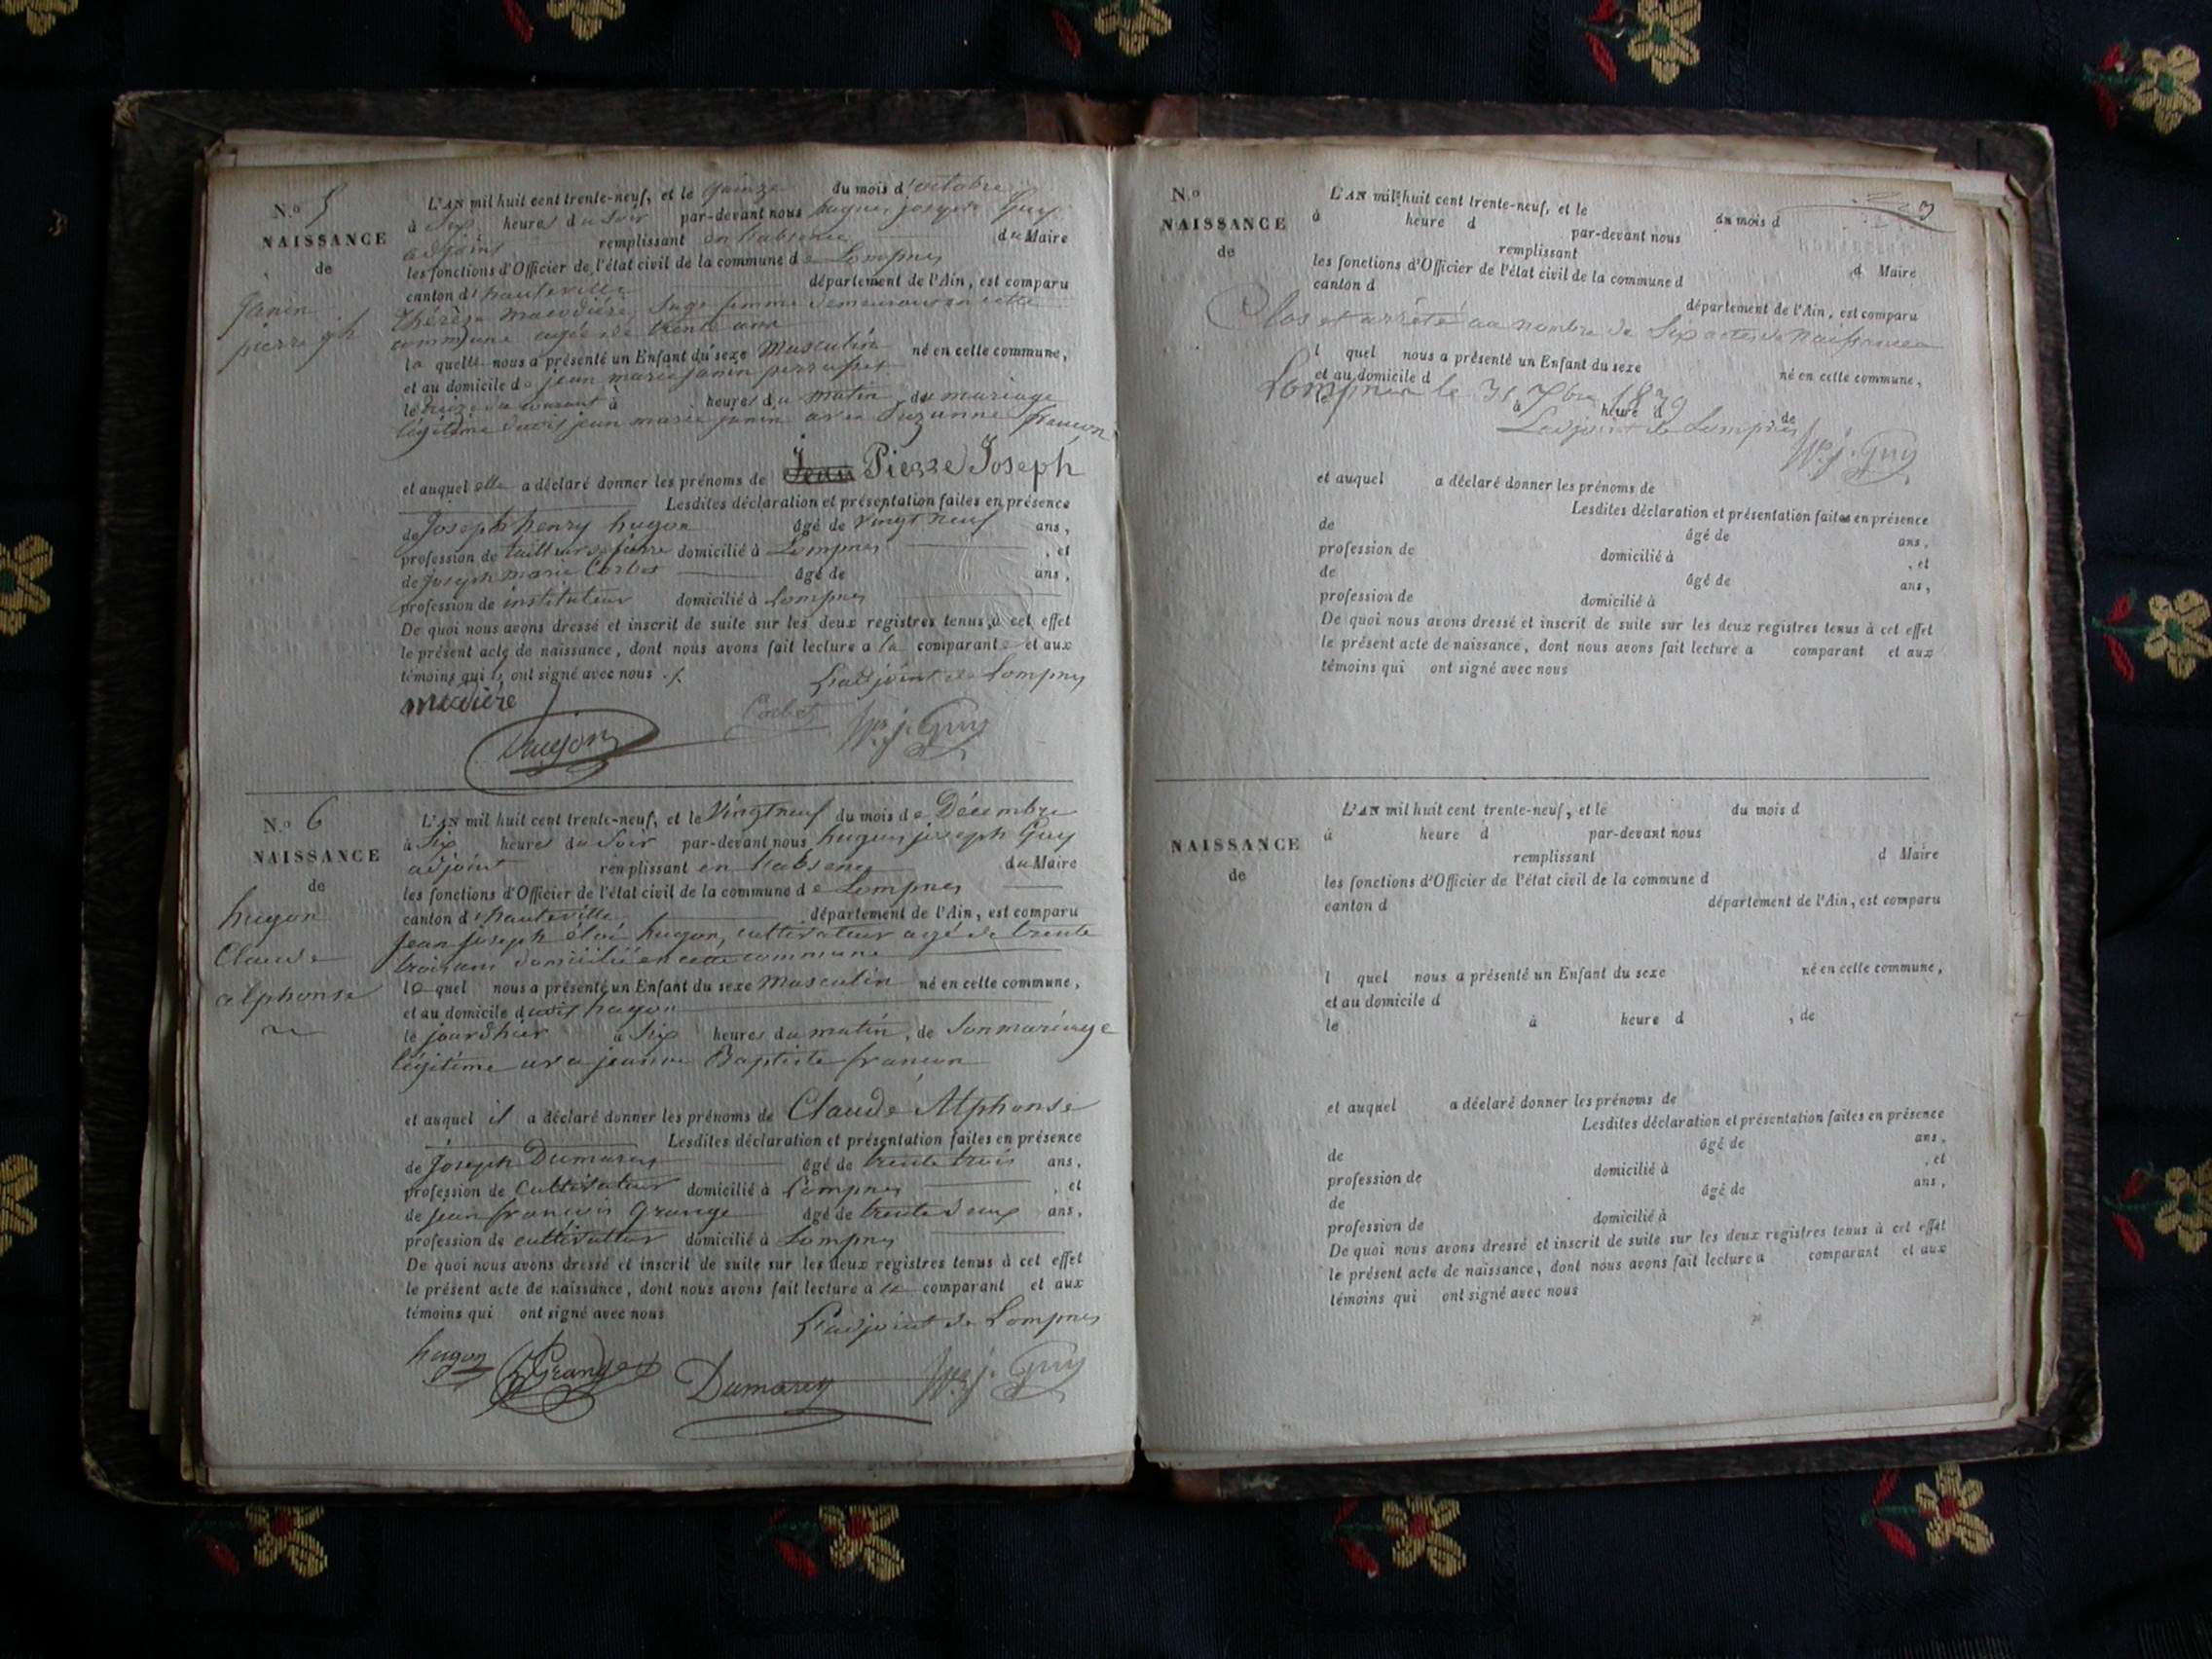 N.º 5
NAISSANCE
de
Janin
pierre jph
L'AN mil huit cent trente-neuf, et le quinze du mois d'octobre
à Six heures du Soir par-devant nous hugues joseph Guy
adjoint remplissant en l'absence du Maire
les fonctions d'Officier de l'état civil de la commune de Lompnes
canton d'hauteville département de l'Ain, est comparu
thérèse Sage femme demeurant en cette
commune agée de trente ans
la quelle nous a présenté un Enfant du sexe Masculin né en cette commune,
et au domicile de jean marie janin
le du courant à heures du matin du mariage
légitime dudit jean marie janin avec Suzanne francon
et auquel elle a déclaré donner les prénoms de Jean Pierre Joseph
Lesdites déclaration et présentation faites en présence
de Joseph henry hugon âgé de vingt neuf ans,
profession de tailleur de pierre domicilié à Lompnes , et
de Joseph marie Corbet âgé de ans,
profession de instituteur domicilié à Lompnes
De quoi nous avons dressé et inscrit de suite sur les deux registres tenus à cet effet
le présent acte de naissance, dont nous avons fait lecture a la comparante et aux
témoins qui ont signé avec nous ./.
L'adjoint de Lompnes
Hugon Corbet hes j. Guy
N.º 6
NAISSANCE
de
hugon
Claude
alphonse
L'AN mil huit cent trente-neuf, et le Vingt neuf du mois de Décembre
à Six heures du Soir par-devant nous hugues joseph Guy
adjoint remplissant en l'absence du Maire
les fonctions d'Officier de l'état civil de la commune de Lompnes
canton d'hauteville département de l'Ain, est comparu
jean joseph éloi hugon, cultivateur agé de trente
trois ans domicilié en cette commune
le quel nous a présenté un Enfant du sexe Masculin né en cette commune,
et au domicile dudit hugon
le jour d'hier à Six heures du matin, de Son mariage
légitime avec jeanne Baptiste francon
et auquel il a déclaré donner les prénoms de Claude Alphonse
Lesdites déclaration et présentation faites en présence
de Joseph Dumarey âgé de trente trois ans,
profession de Cultivateur domicilié à Lompnes , et
de jean françois Grange âgé de trente deux ans,
profession de cultivateur domicilié à Lompnes
De quoi nous avons dressé et inscrit de suite sur les deux registres tenus à cet effet
le présent acte de naissance, dont nous avons fait lecture a le comparant et aux
témoins qui ont signé avec nous
L'adjoint de Lompnes
hugon Grange Dumarey hes j. Guy
3
N.º
NAISSANCE
de
L'AN mil huit cent trente-neuf, et le du mois d
à heure d par-devant nous
remplissant d Maire
les fonctions d'Officier de l'état civil de la commune d
canton d département de l'Ain, est comparu
Clos et arrêté au nombre de Six actes de Naissances
l quel nous a présenté un Enfant du sexe né en cette commune,
et au domicile d
Lompnes le 31 Xbre 1839
le à heure d de
L'adjoint de Lompnes
hes j. Guy
et auquel a déclaré donner les prénoms de
Lesdites déclaration et présentation faites en présence
de âgé de ans,
profession de domicilié à , et
de âgé de ans,
profession de domicilié à
De quoi nous avons dressé et inscrit de suite sur les deux registres tenus à cet effet
le présent acte de naissance, dont nous avons fait lecture a comparant et aux
témoins qui ont signé avec nous
NAISSANCE
de
L'AN mil huit cent trente-neuf, et le du mois d
à heure d par-devant nous
remplissant d Maire
les fonctions d'Officier de l'état civil de la commune d
canton d département de l'Ain, est comparu
l quel nous a présenté un Enfant du sexe né en cette commune,
et au domicile d
le à heure d , de
et auquel a déclaré donner les prénoms de
Lesdites déclaration et présentation faites en présence
de âgé de ans,
profession de domicilié à , et
de âgé de ans,
profession de domicilié à
De quoi nous avons dressé et inscrit de suite sur les deux registres tenus à cet effet
le présent acte de naissance, dont nous avons fait lecture a comparant et aux
témoins qui ont signé avec nous